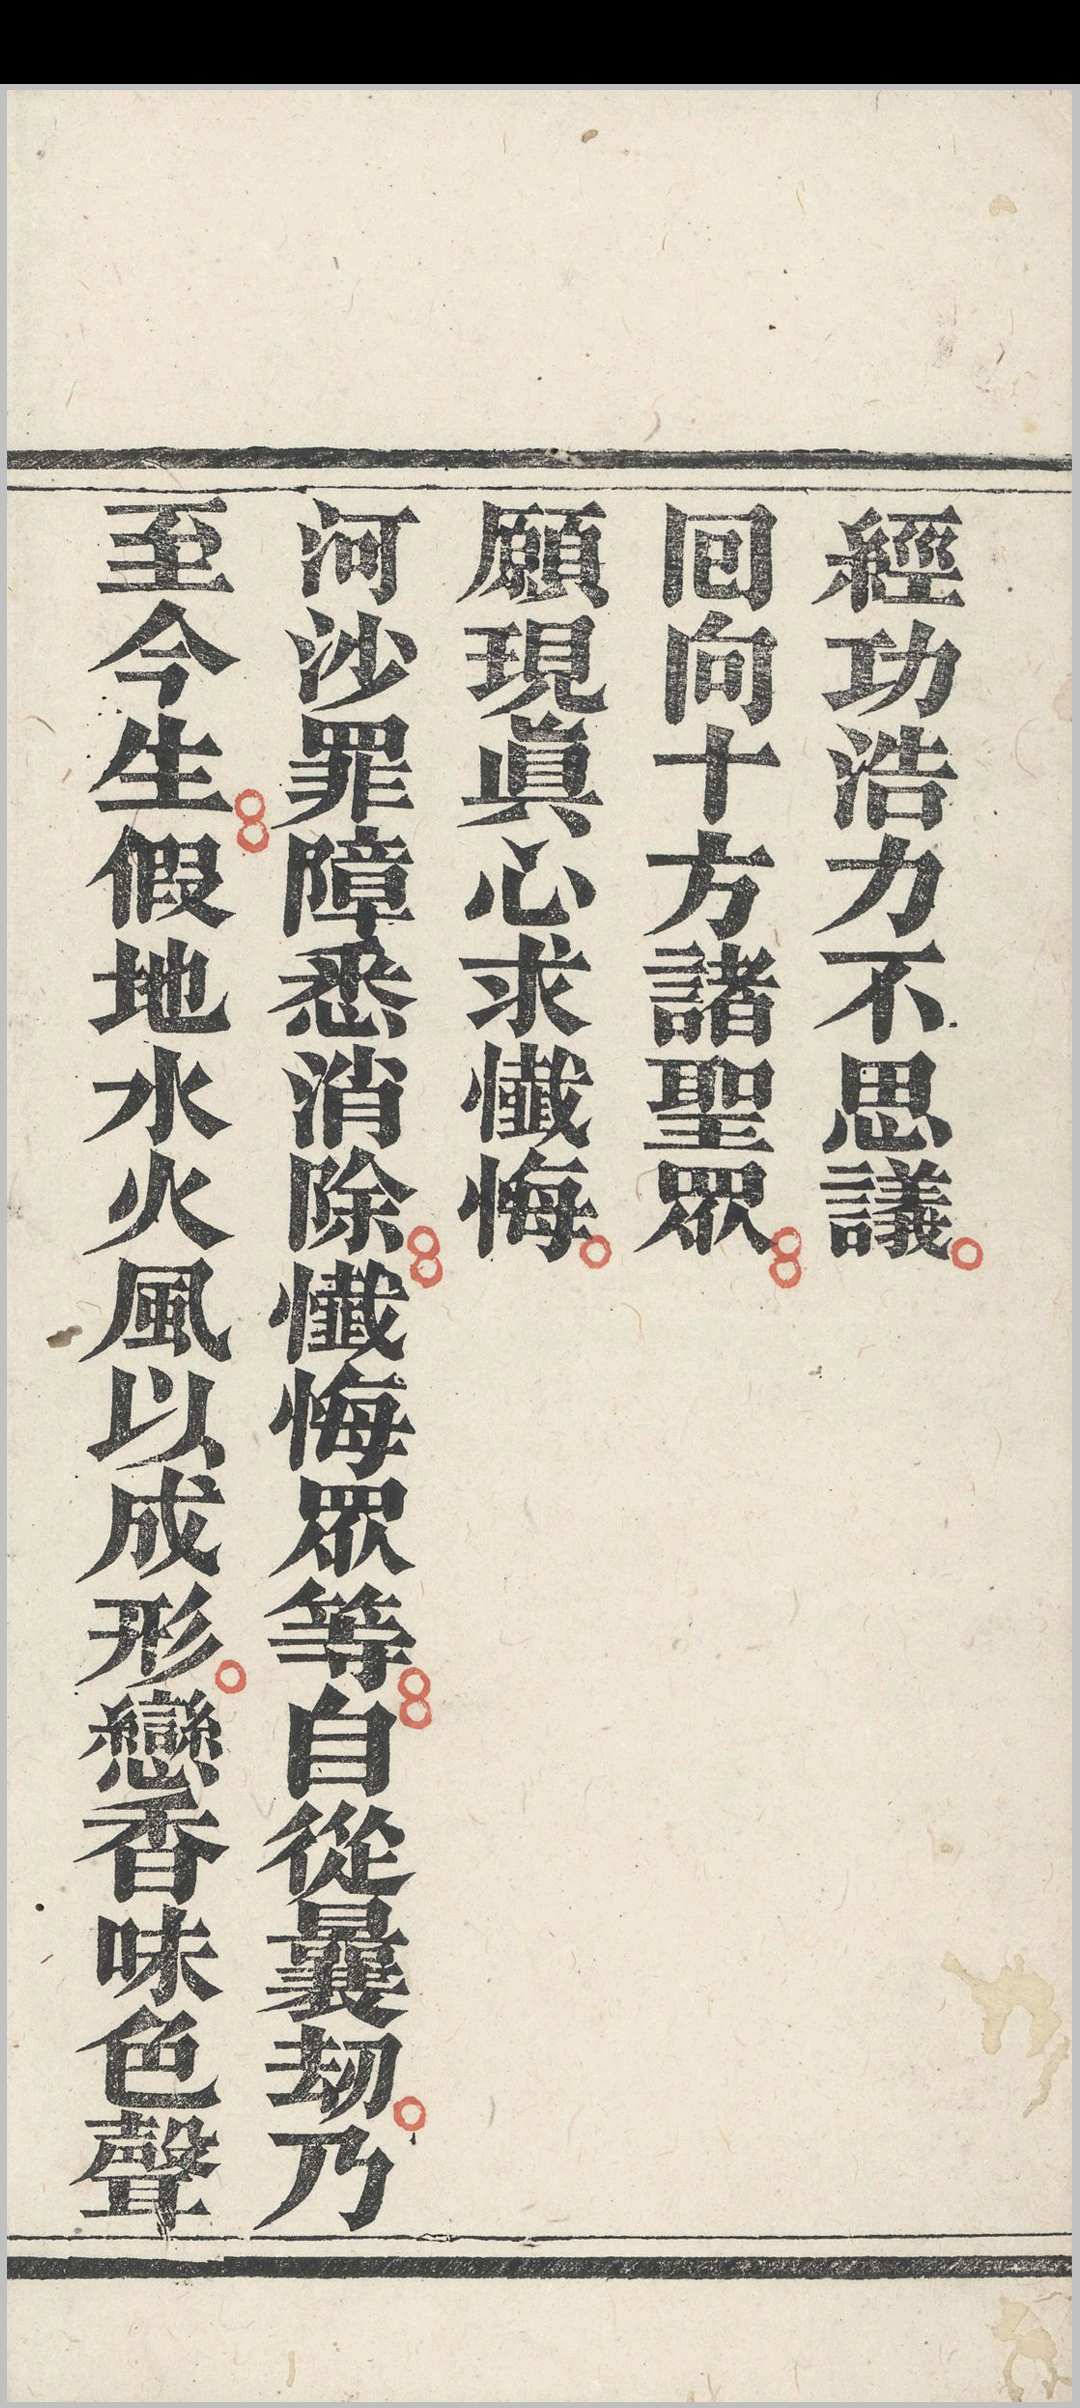 經功浩力不思議
回向十方諸聖眾
願現眞心求懺悔
河沙罪障悉消除懺悔眾等自從曩劫乃
至今生假地水火風以成形戀香味色聲